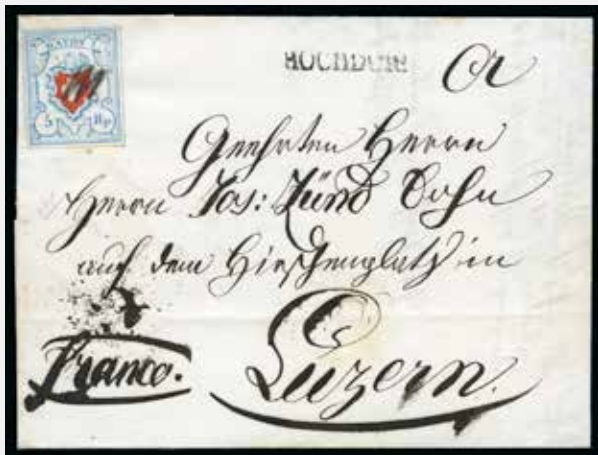 RAYON
5 Rp.
HOCHDORF
Geehrten Herrn
Herrn Jos: Zünd Sohn
auf dem Hirschenplatz in
Franco. Luzern.